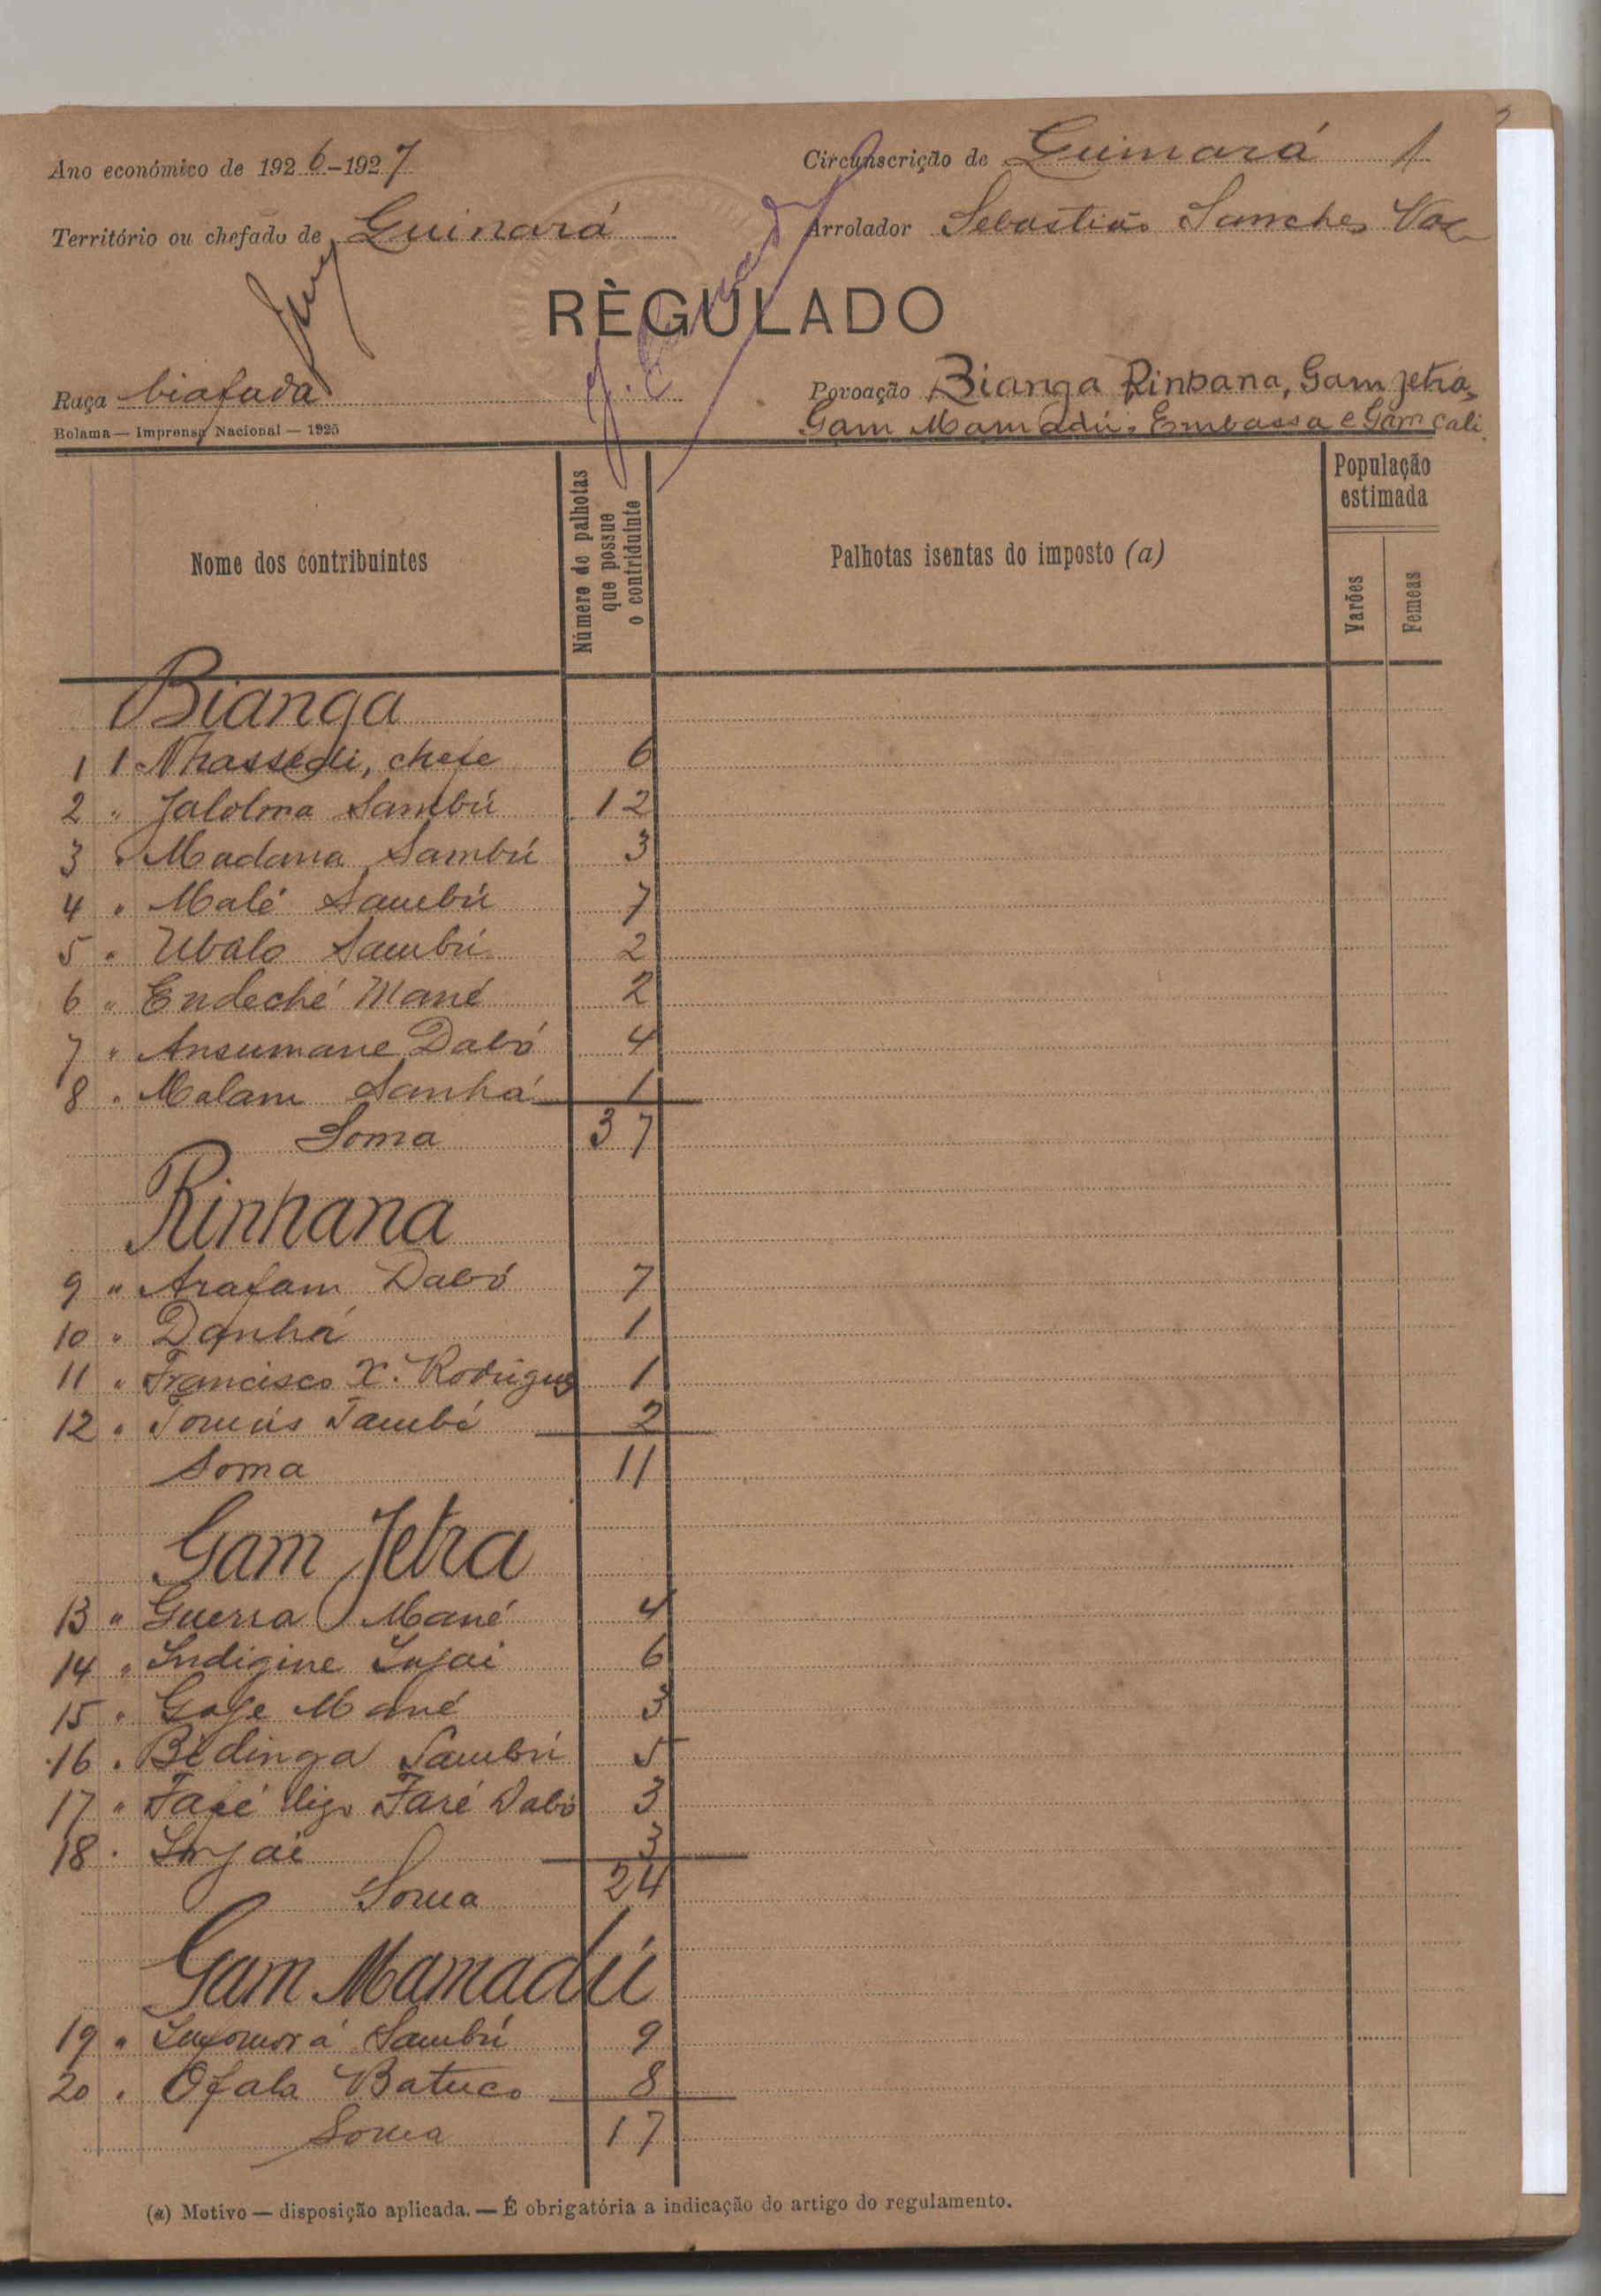 Ano económico de 1926-1927
Circunscrição de Guinará 1
Território ou chefado de Guinará
Arrolador Sebastião Sanches Vaz
RÈGULADO
Raça biafada
Povoação Bianga Rinhana, Gam Jetra,
Gam Mamadú, Embassa e Gam Cali
Bolama — Imprensa Nacional — 1925
Nome dos contribuintes
Número de palhotas que possue o contriduinte
Palhotas isentas do imposto (a)
População estimada
Varões
Femeas
Bianga
1 1 Nhassedi, chefe 6
2 " Jalolma Sambú 12
3 " Madana Sambú 3
4 " Malé Sambú 7
5 " Ubalo Sambú 2
6 " Endeché Mané 2
7 " Ansumane Dabó 4
8 " Malam Sanhá 1
Soma 37
Rinhana
9 " Arafam Dabó 7
10 " Danhá 1
11 " Francisco X. Rodrigues 1
12 " Tomás 2
Soma 11
Gam Jetra
13 " Guerra Mané 4
14 " Indigine Injai 6
15 " Mané 3
16 " Bedinga Sambú 5
17 " Fafé digo Faré Dabó 3
18 " Injai 3
Soma 24
Gam Mamadú
19 " Sambú 9
20 " Ofala Batuco 8
Soma 17
(a) Motivo — disposição aplicada. — É obrigatória a indicação do artigo do regulamento.